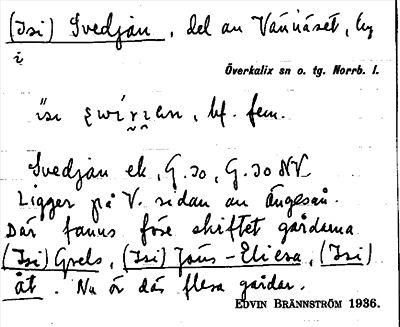 (Isi) Svedjan, del av Vännäset, by
i
Överkalix sn o. tg. Norrb. l.
bf. fem.
Svedjan ek. G. 30, G. 30 NV.
Ligger på V. sidan av Ängesån.
Där fanns före skiftet gårdarna
(Isi) Grels, (Isi) Jöns-Eliesa, (Isi)
åt. Nu är där flera gårdar.
EDVIN BRÄNNSTRÖM 1936.